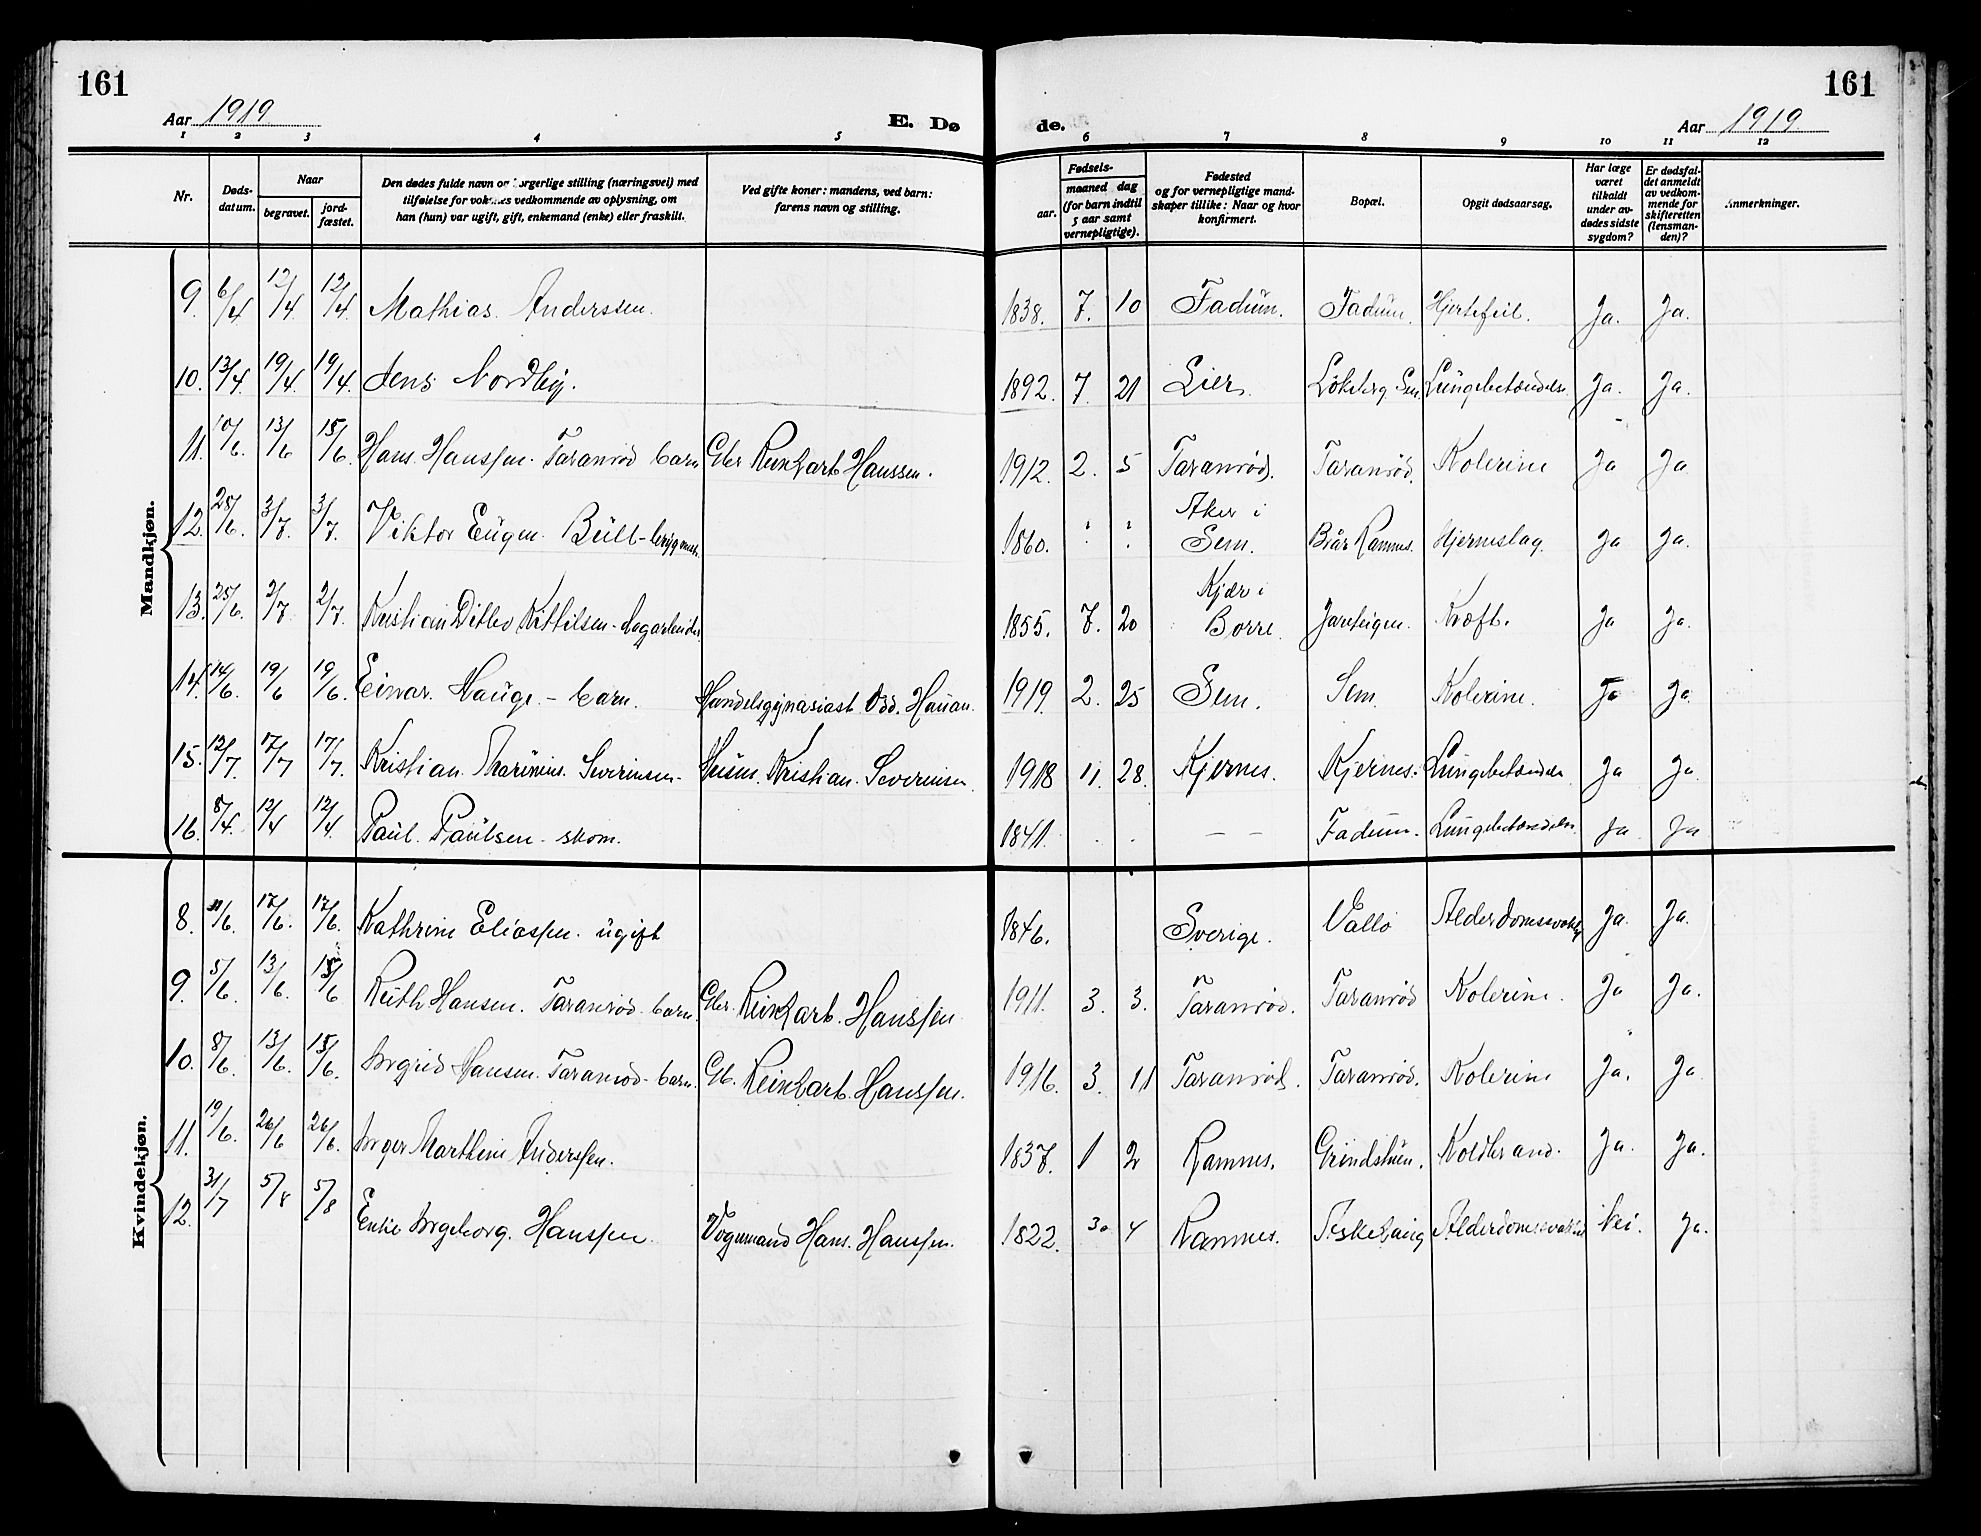 161
161
Aar 1919
E. Dø
de.
Aar 1919.
1 2 3 4 5 6 7 8 9 10 11 12
Nr.
Døds-
datum.
Naar
begravet.
jord-
fæstet.
Den dødes fulde navn og borgerlige stilling (næringsvei) med
tilføielse for voksnes vedkommende av oplysning, om
han (hun) var ugift, gift, enkemand (enke) eller fraskilt.
Ved gifte koner: mandens, ved barn:
farens navn og stilling.
Fødsels-
aar.
maaned dag
(for barn indtil
5 aar samt
vernepligtige).
Fødested
og for vernepligtige mand-
skaper tillike: Naar og hvor
konfirmert.
Bopæl.
Opgit dødsaarsag.
Har læge
været
tilkaldt
under av-
dødes sidste
sygdom?
Er dødsfal-
det anmeldt
av vedkom-
mende for
skifteretten
(lensman-
den)?
Anmerkninger.
Mandkjøn.
9. 6/4 12/4. 12/4. Mathias Anderssen. 1838. 7. 10 Fadum. Fadum. Hjertefeil. Ja. Ja.
10. 13/4. 19/4. 19/4. Jens Nordby. 1892. 7. 21 Lier. Løkeberg Sem. Lungebetændelse Ja. Ja.
11. 10/6. 13/6 15/6. Hans Hanssen. Taranrød barn Gbr Reinhart Hanssen. 1912. 2. 5 Taranrød. Taranrød. Kolerine Ja Ja
12. 28/6. 3/7. 3/7. Viktor Eugen Bull - brygmest. 1860. Aker i
Sem. Ramnes. Hjerneslag. Ja Ja.
13. 25/6. 2/7 2/7. Kristian Ditlev Kittilsen - dagarbeider 1855. 7. 20 Kjær i
Borre. Jareteigen. Kræft. Ja Ja.
14. 14/6. 19/6 19/6. Einar Hauge - barn. Handelsgymnasiast Odd. Hauan. 1919. 2. 25 Sem. Sem. Kolerine. Ja Ja.
15. 12/7. 17/7 17/7. Kristian Marinius Severinsen - Husm. Kristian Severinsen. 1918 11. 28. Kjernes. Kjernes. Lungebetændelse Ja Ja.
16. 8/4. 12/4 12/4. Paul Paulsen - skom. 1841. . . — — Fadum. Lungebetændelse Ja Ja
Kvindekjøn.
8. 11/6. 17/6. 17/6. Kathrine Eliassen. ugift 1846. Sverige. Vallø Alderdomssvakhet Ja. Ja.
9. 5/6. 13/6. 15/6 Ruth Hansen. Taranrød barn. Gbr. Reinhart. Hanssen 1911. 3. 3. Taranrød. Taranrød Kolerine. Ja Ja.
10. 8/6. 13/6. 15/6. Ingrid Hansen. Taranrød - barn. Gb. Reinhart. Hanssen. 1916. 3. 11 Taranrød. Taranrød. Kolerine Ja. Ja
11. 19/6. 26/6 26/6. Inger Marthine Anderssen. 1837. 1 2 Ramnes. Grindstuen. Koldbrand. Ja. Ja.
12. 31/7 5/8 5/8 Enke Ingeborg. Hanssen. Vognmand Hans. Hanssen. 1822. 30 4 Ramnes. Askehaug Alderdomssvakhet Nei. Ja.